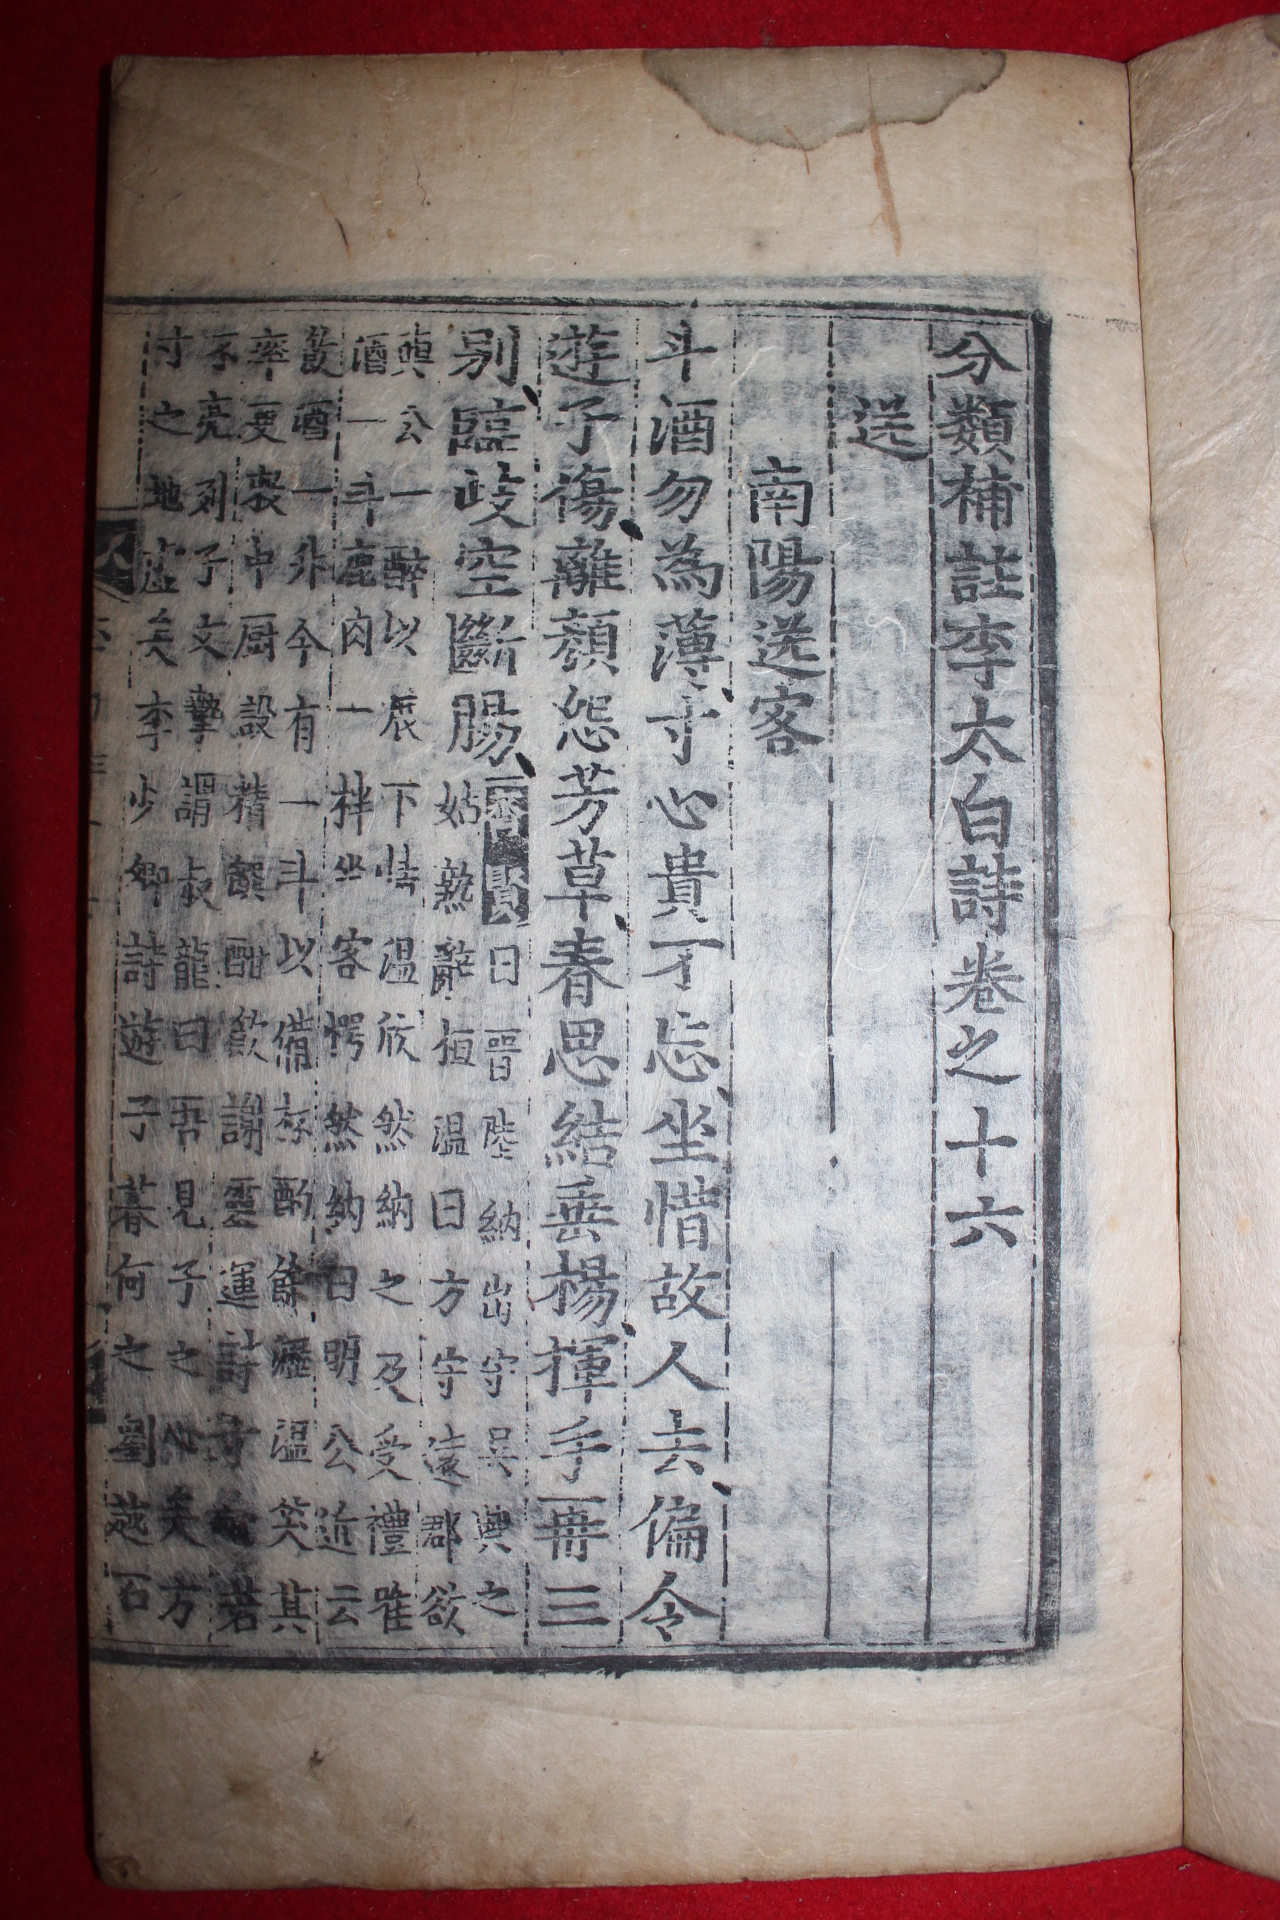 分類補註李太白詩卷之十六
送
南陽送客
斗酒勿為薄寸心貴不忘坐惜故人去偏令
遊子傷離顏怨芳草春思結垂楊揮手再三
別臨歧空斷腸
齊賢曰晉陸納出守吳興之
姑熟辭桓温曰方守遠郡欲
與公一醉以展下情温欣然納之及受禮唯
酒一斗鹿肉一柈坐客愕然納曰明公近云
飲酒一升今有一斗以備杯酌餘瀝温笑其
率更敕中厨設精饌酣飲謝靈運詩寸心若
不亮列子文摯謂叔龍曰吾見子之心矣方
寸之地虛矣李少卿詩遊子暮何之劉越石